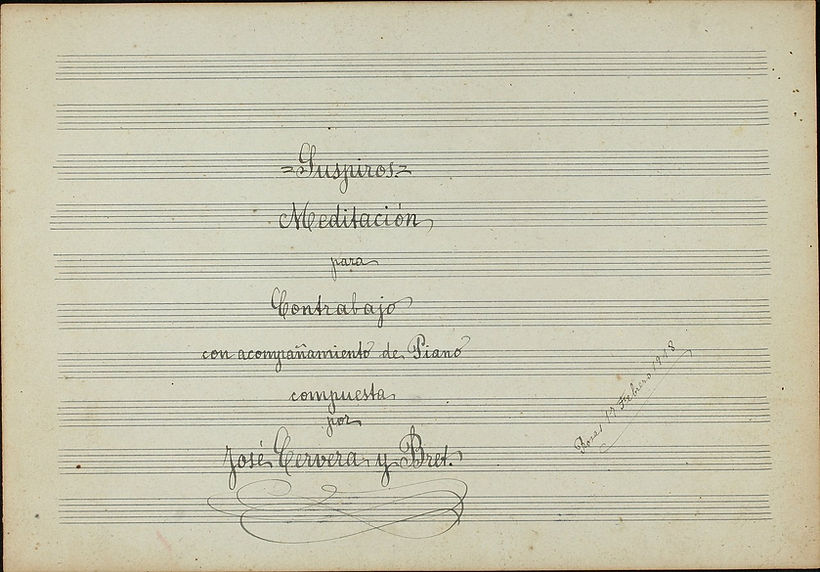 =Suspiros.=
Meditación
para
Contrabajo
con acompañamiento de Piano
compuesta
por
José Cervera y Bret.
Febrero 1918